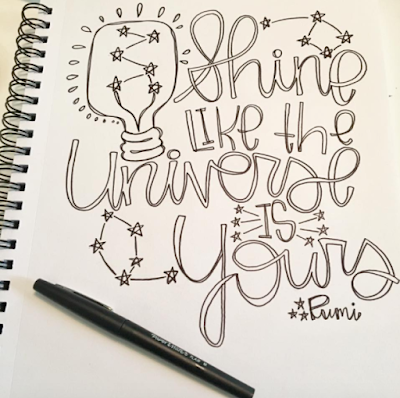 Shine
LIKE the
Universe
IS
Yours
Rumi